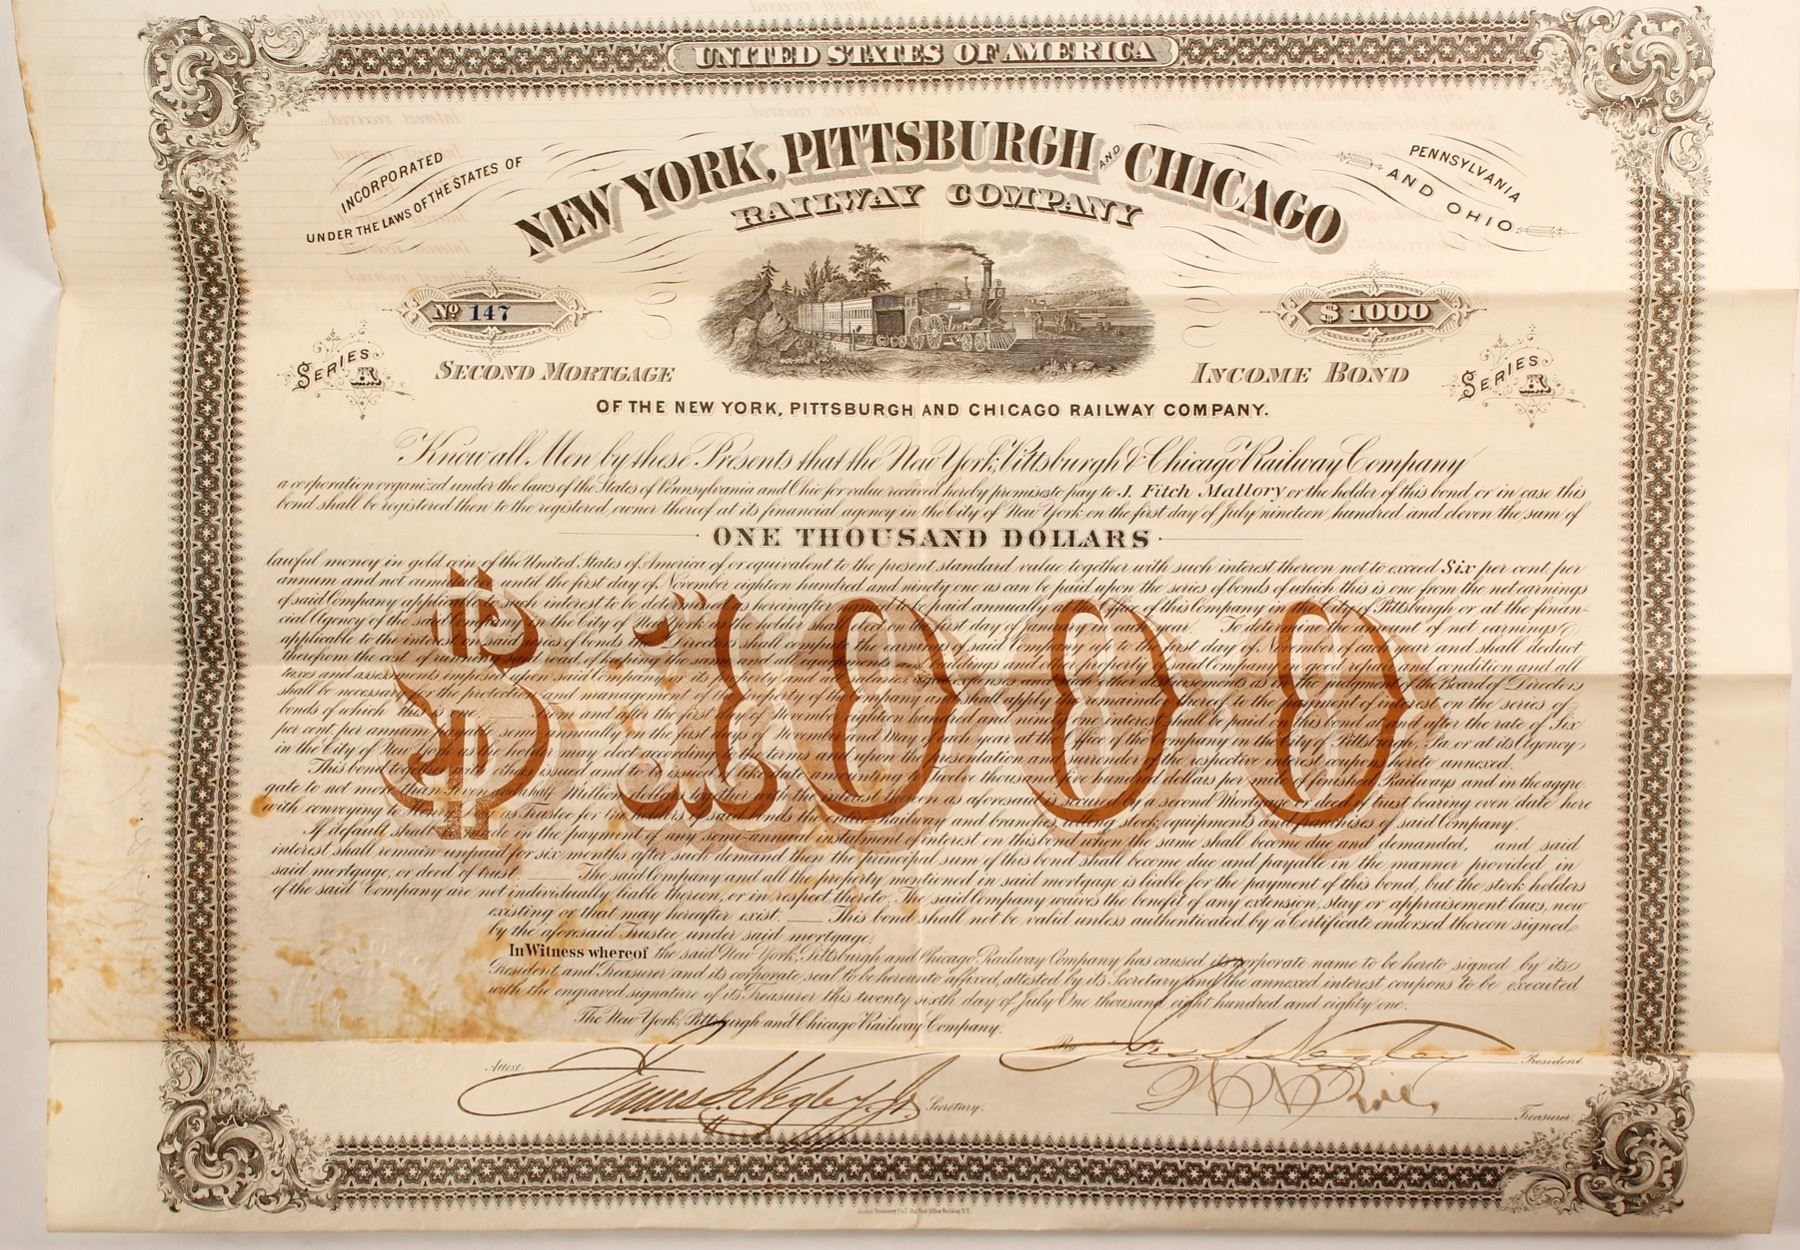 UNITED STATES OF AMERICA
INCORPORATED
UNDER THE LAWS OF THE STATES OF
PENNSYLVANIA
AND OHIO
NEW YORK, PITTSBURGH AND CHICAGO
RAILWAY COMPANY
No 147
$1000
SERIES A
SECOND MORTGAGE
INCOME BOND
SERIES A
OF THE NEW YORK, PITTSBURGH AND CHICAGO RAILWAY COMPANY.
Know all Men by these Presents that the New York, Pittsburgh & Chicago Railway Company
a corporation organized under the laws of the States of Pennsylvania and Ohio for value received hereby promises to pay to J. Fitch Mallory or the holder of this bond or in case this
bond shall be registered then to the registered owner thereof at its financial agency in the City of New York on the first day of July nineteen hundred and eleven the sum of
ONE THOUSAND DOLLARS
lawful money in gold coin of the United States of America of or equivalent to the present standard value together with such interest thereon not to exceed Six per cent. per
annum and not cumulative until the first day of November eighteen hundred and ninety one as can be paid upon the series of bonds of which this is one from the net earnings
of said Company applicable to such interest to be determined as hereinafter named to be paid annually at office of this Company in the City of Pittsburgh or at the finan-
cial Agency of the said Company in the City of New York as the holder shall elect on the first day of January in each year. To determine the amount of net earnings
applicable to the interest on said series of bonds the Directors shall compute the earnings of said Company up to the first day of November of each year and shall deduct
therefrom the cost of running said road, of keeping the same and all equipments buildings and other property of said Company in good repair and condition and all
taxes and assessments imposed upon said Company or its property and all salaries, agency expenses and such other disbursements as in the judgment of the Board of Directors
shall be necessary for the protection and management of the property of the Company and shall apply the remainder thereof to the payment of interest on the series of
bonds of which this is one. From and after the first day of November eighteen hundred and ninety one interest shall be paid on this bond at and after the rate of Six
per cent. per annum payable semi annually on the first days of November and May of each year at the office of the Company in the City of Pittsburgh, Pa. or at its Agency
in the City of New York as the holder may elect according to the terms and upon the presentation and surrender of the respective interest coupons hereto annexed.
This bond together with others issued and to be issued of like date amounting to twelve thousand five hundred dollars per mile of finished Railways and in the aggre-
gate to not more than Seven and a half Million dollars together with the interest thereon as aforesaid is secured by a second Mortgage or deed of trust bearing even date here
with conveying to Henry as Trustee for the holders of said bonds the entire Railway and branches, rolling stock, equipments and franchises of said Company.
If default shall be made in the payment of any semi-annual instalment of interest on this bond when the same shall become due and demanded, and said
interest shall remain unpaid for six months after such demand then the principal sum of this bond shall become due and payable in the manner provided in
said mortgage, or deed of trust. The said Company and all the property mentioned in said mortgage is liable for the payment of this bond, but the stock holders
of the said Company are not individually liable thereon, or in respect thereto. The said Company waives the benefit of any extension, stay or appraisement laws, now
existing or that may hereafter exist. This bond shall not be valid unless authenticated by a Certificate endorsed thereon signed
by the aforesaid Trustee under said mortgage.
In Witness whereof the said New York, Pittsburgh and Chicago Railway Company has caused its corporate name to be hereto signed by its
President and Treasurer and its corporate seal to be hereunto affixed, attested by its Secretary and the annexed interest coupons to be executed
with the engraved signature of its Treasurer this twenty sixth day of July One thousand eight hundred and eighty one.
The New York, Pittsburgh and Chicago Railway Company.
$1000
Attest. James S. Negley, Jr. Secretary.
By President
Treasurer